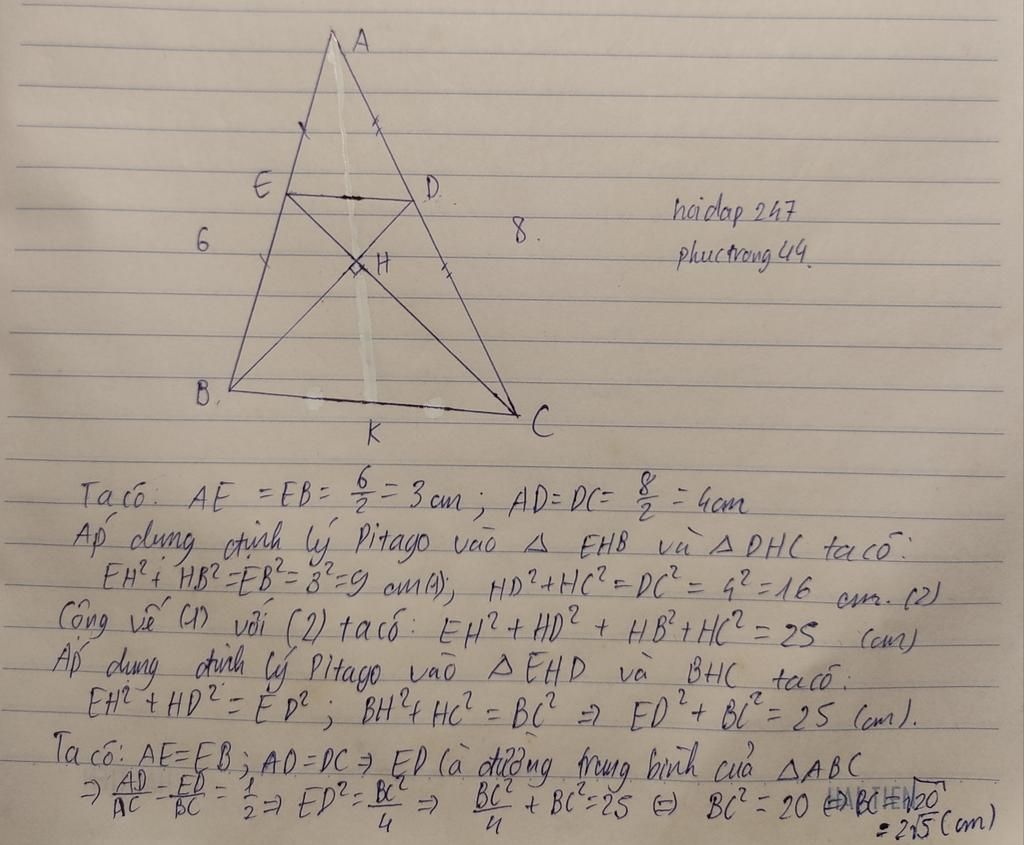 A
E
D
6
8.
hoidap 247
phuctrong44.
H
B.
K
C
Ta có: AE = EB = 6/2 = 3 cm ; AD = DC = 8/2 = 4cm
Áp dụng định lý Pitago vào Δ EHB và Δ DHC ta có:
EH² + HB² = EB² = 3² = 9 cm (1); HD² + HC² = DC² = 4² = 16 cm. (2)
Cộng vế (1) với (2) ta có: EH² + HD² + HB² + HC² = 25 (cm)
Áp dụng định lý Pitago vào Δ EHD và BHC ta có:
EH² + HD² = ED² ; BH² + HC² = BC² ⇒ ED² + BC² = 25 (cm).
Ta có: AE = EB ; AD = DC ⇒ ED là đường trung bình của ΔABC
⇒ AD/AC = ED/BC = 1/2 ⇒ ED² = BC²/4 ⇒ BC²/4 + BC² = 25 ⇔ BC² = 20 ⇔ BC = √20
= 2√5 (cm)